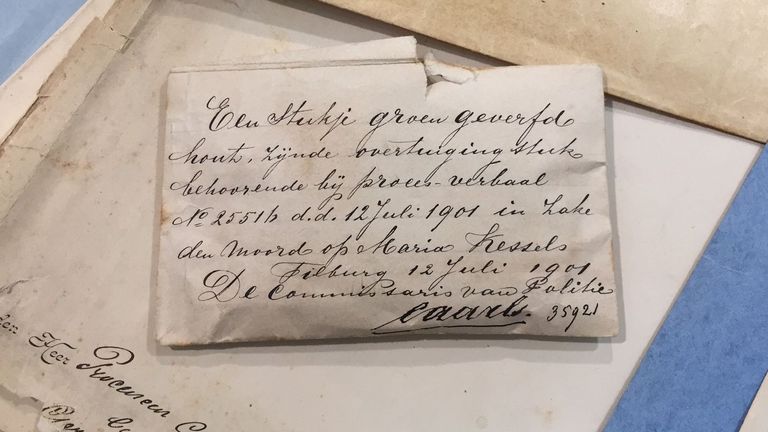 Een Stukje groen geverfd
hout, zijnde overtuigingstuk
behoorende bij proces-verbaal
No 2551b d.d. 12 Juli 1901 in zake
den moord op Maria Kessels
Tilburg 12 Juli 1901
De Commissaris van Politie
Caarls.
35921
Heer Procureur